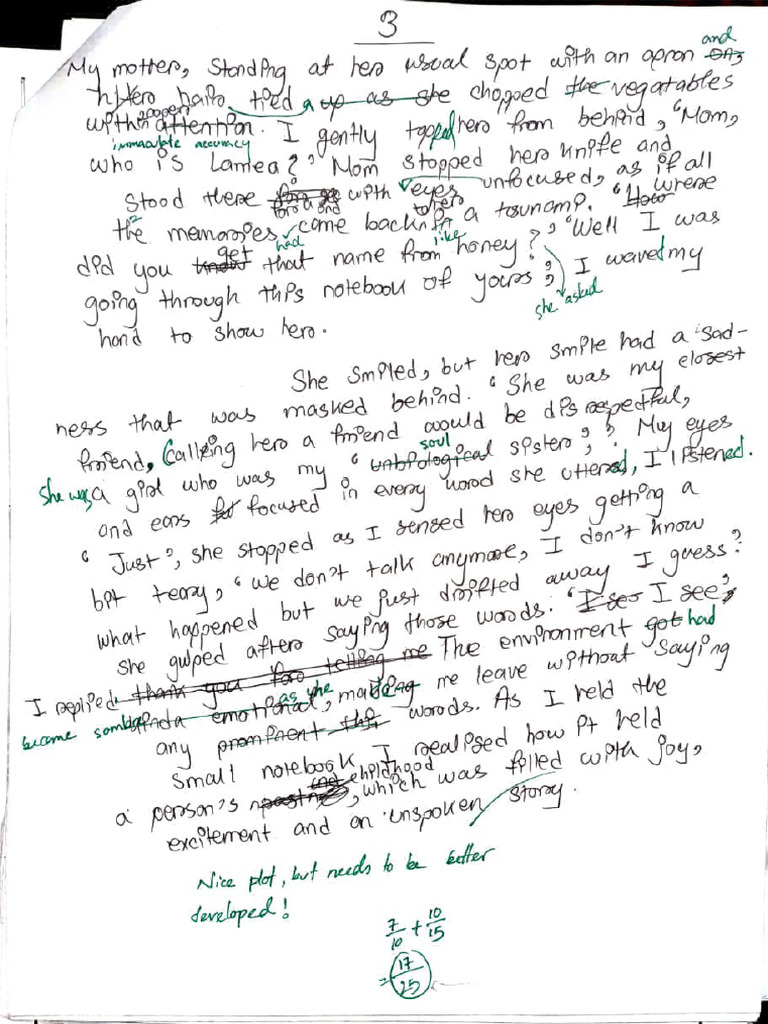 3
and
My mother, standing at her usual spot with an apron on,
Her hair tied up as she chopped the vegatables
with proper attention. I gently tapped her from behind, "Mom,
immaculate accuracy
who is Lamea?" Mom stopped her knife and
stood there for a with eyes unfocused, as if all
the memories came back in a tsunami. "How were
had her like
did you know get that name from honey?", "Well I was
going through this notebook of yours", I waved my
she asked
hand to show her.
She smiled, but her smile had a sad-
ness that was masked behind. "She was my closest
friend, Calling her a friend would be disrespectful,
soul
She was a girl who was my "unbiological sister", ? My eyes
and ears focused in every word she uttered, I listened.
"Just", she stopped as I sensed her eyes getting a
bit teary, "we don't talk anymore, I don't know
what happened but we just drifted away I guess?
she gulped after saying those words. "I see I see"
I replied thank you for telling me The environment got had
as she
become somber kinda emotional, making me leave without saying
any prominent words. As I held the
small notebook, I realised how it held
childhood
a person's past, which was filled with joy,
excitement and an unspoken story.
Nice plot, but needs to be better
developed!
7/10 + 10/15
= 17/25